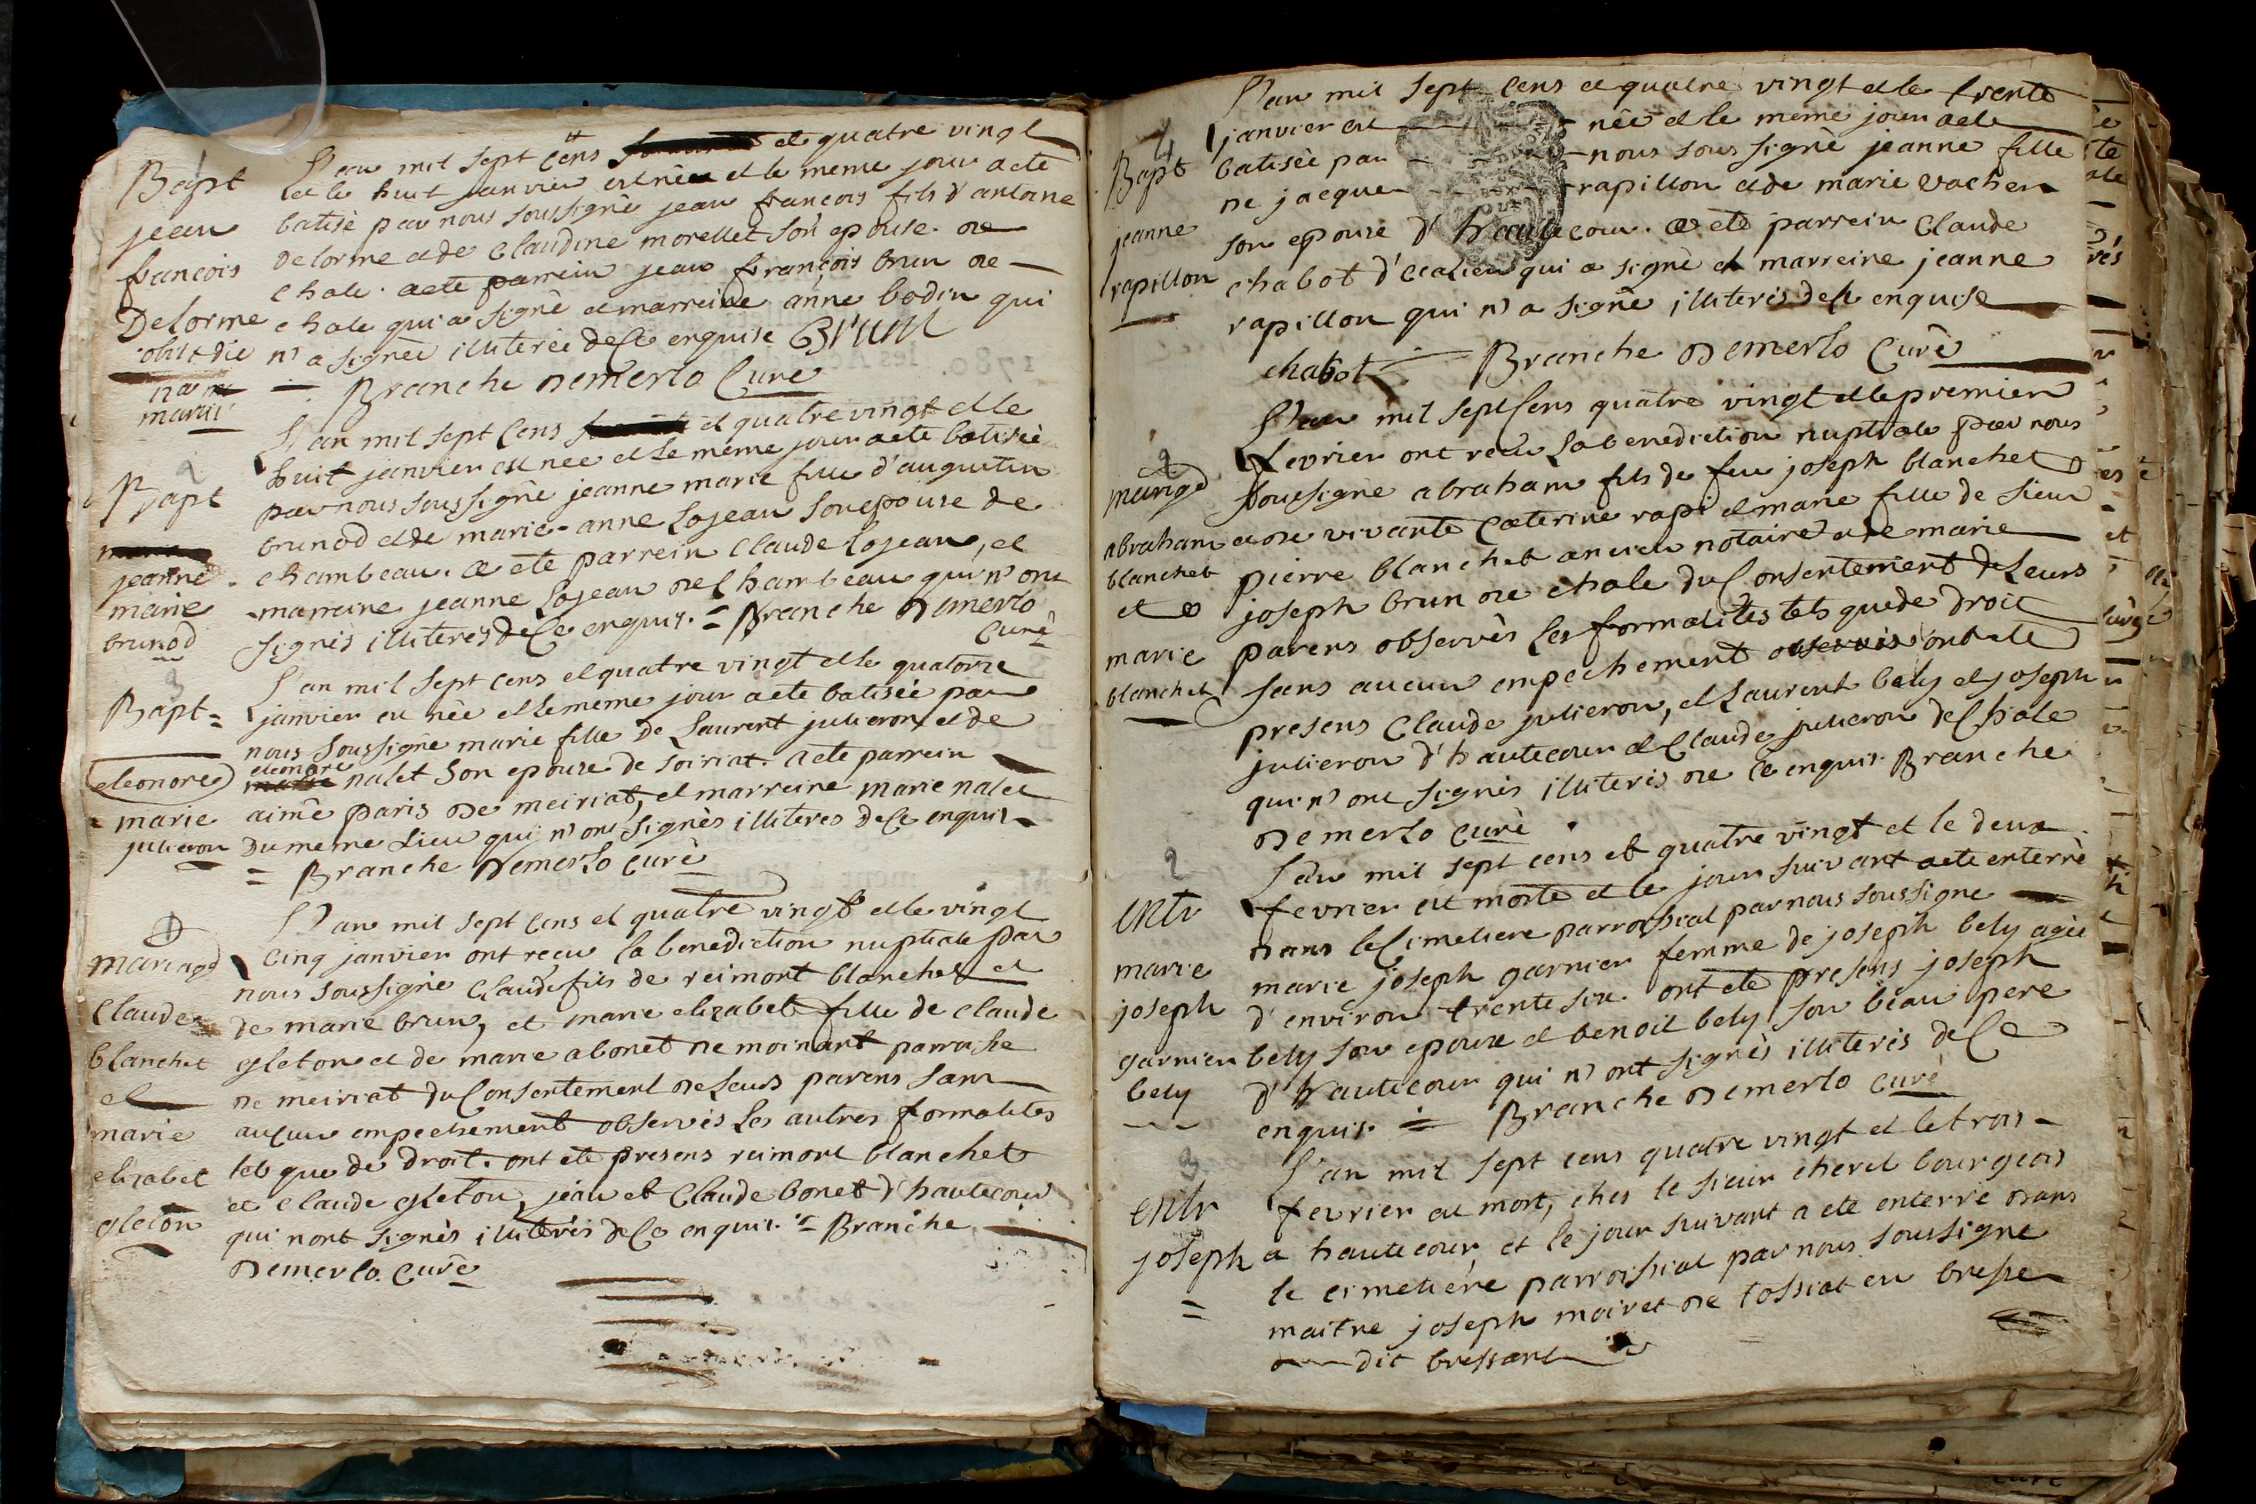 1
Bapt
jean
francois
Delorme
L'an mil sept cens et quatre vingt
et le huit janvier est née et le meme jour a ete
batisé par nous soussigné jean francois fils d'antoine
delorme et de Claudine morellet son epouse de
chale. a ete parrein jean françois brun de
chale qui a signé et marreine anne bodin qui
n'a signée illiterée de ce enquise Brun
= Branche Demerlo Curé
2
Bapt
jeanne
marie
brunod
L'an mil sept cens et quatre vingt et le
huit janvier est née et le meme jour a ete batisée
par nous soussigné jeanne marie fille d'augustin
brunod et de marie-anne Lojean son epouse de
chambeau. a ete parrein Claude Lojean, et
marreine jeanne Lojean de chambeau qui n'ont
signés illiterés de ce enquis. = Branche Demerlo
Curé
3
Bapt =
eleonore
marie
julieron
L'an mil sept cens et quatre vingt et le quatorze
janvier est née et le meme jour a ete batisée par
nous soussigné marie fille de Laurent julieron et de
eleonore
nalet son epouse de soiriat. a ete parrein
aimé paris de meiriat, et marreine marie nalet
du meme lieu qui n'ont signés illiteres de ce enquis
= Branche Demerlo curé
1
mariage
Claude
blanchet
et
marie
elizabet
gleton
L'an mil sept cens et quatre vingt et le vingt
cinq janvier ont recu la benediction nuptiale par
nous soussigné Claude fils de reimont blanchet et
de marie brun, et marie elizabet fille de Claude
gleton et de marie abonet de moinant parroisse
de meiriat du consentement de leurs parens sans
aucun empechement observés les autres formalités
tels que de droit. ont ete presens reimont blanchet
et Claude gleton, jean et Claude bonet d'hautecour
qui n'ont signés illiterés de ce enquis. = Branche
Demerlo Curé
4
Bapt
jeanne
rapillon
L'an mil sept cens et quatre vingt et le trente
janvier est née et le même jour a ete
batisée par nous sous signé jeanne fille
de jacque rapillon et de marie vacher
son epouse d'hautecour. a ete parrein Claude
chabot d' qui a signé et marreine jeanne
rapillon qui n'a signé illiterés de ce enquise
chabot = Branche Demerlo Curé
2
mariage
abraham
blanchet
et
marie
blanchet
L'an mil sept cens quatre vingt et le premier
fevrier ont recu la benediction nuptiale par nous
soussigné abraham fils de feu joseph blanchet
et de vivante Caterine rapi et marie fille de sieur
pierre blanchet ancien notaire et de marie
joseph brun de chale du consentement de leurs
parens observés les formalités tels que de droit
sans aucun empechement ont ete
presens Claude julieron, et Laurent bely et joseph
julieron d'hautecour et Claude julieron de chale
qui n'ont signés illiterés de ce enquis. Branche
Demerlo curé
2
entr
marie
joseph
garnier
bely
L'an mil sept cens et quatre vingt et le deux
fevrier est morte et le jour suivant a ete enterré
dans le cimetiere parroissial par nous soussigné
marie joseph garnier femme de joseph bely agée
d'environ trente six. ont ete presens joseph
bely son epoux et benoit bely son beau pere
d'hautecour qui n'ont signés illiterés de ce
enquis. = Branche Demerlo Curé
3
entr
joseph
=
L'an mil sept cens quatre vingt et le trois
fevrier est mort, ches le sieur cheret bourgeois
a hautecour, et le jour suivant a ete enterré dans
le cimetiére parroissial par nous soussigné
maitre joseph moiret de tossiat en bresse
dit bressant